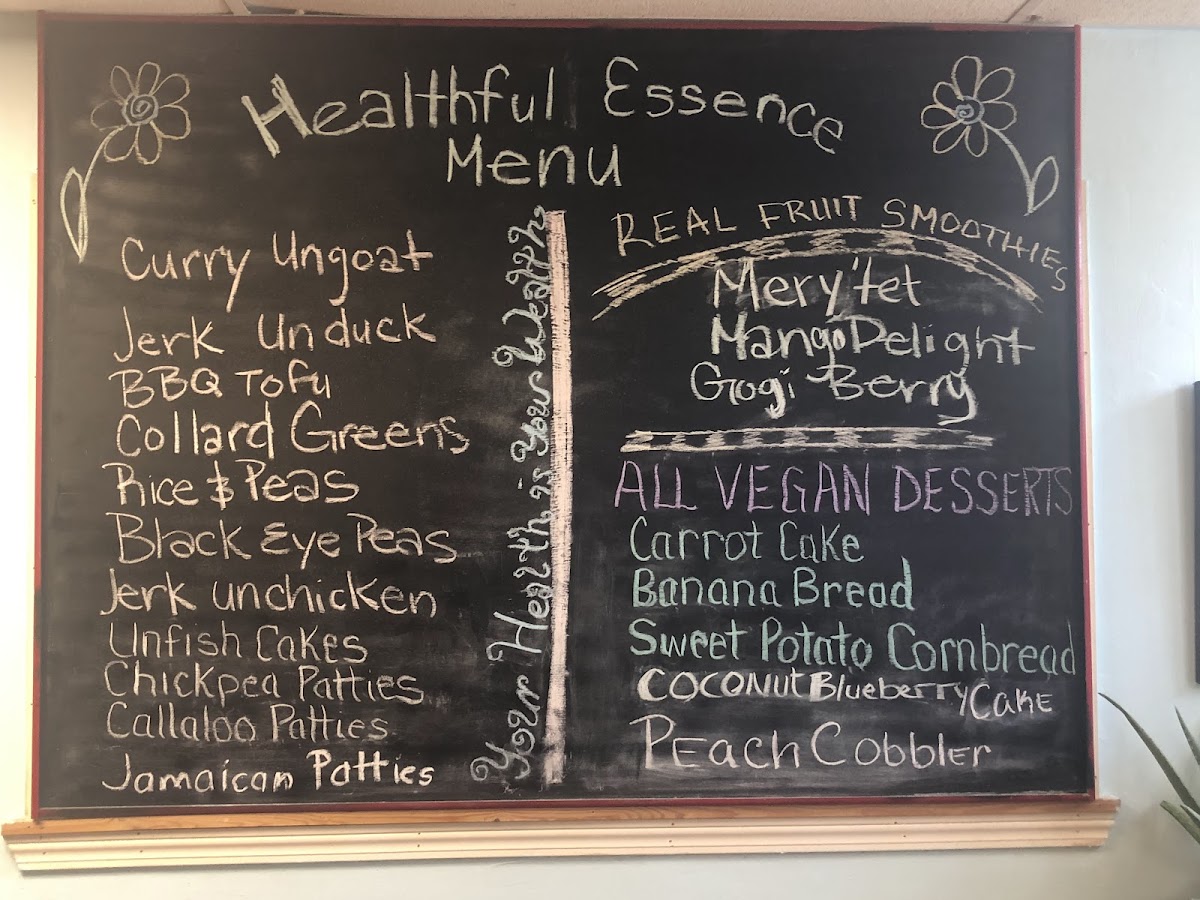 Healthful Essence
Menu
Curry Ungoat
Jerk Unduck
BBQ Tofu
Collard Greens
Rice & Peas
Black Eye Peas
Jerk unchicken
Unfish Cakes
Chickpea Patties
Callaloo Patties
Jamaican Patties
Your Health is Your Wealth
REAL FRUIT SMOOTHIES
Mery'tet
Mango Delight
Gogi Berry
ALL VEGAN DESSERTS
Carrot Cake
Banana Bread
Sweet Potato Cornbread
Coconut Blueberry Cake
Peach Cobbler